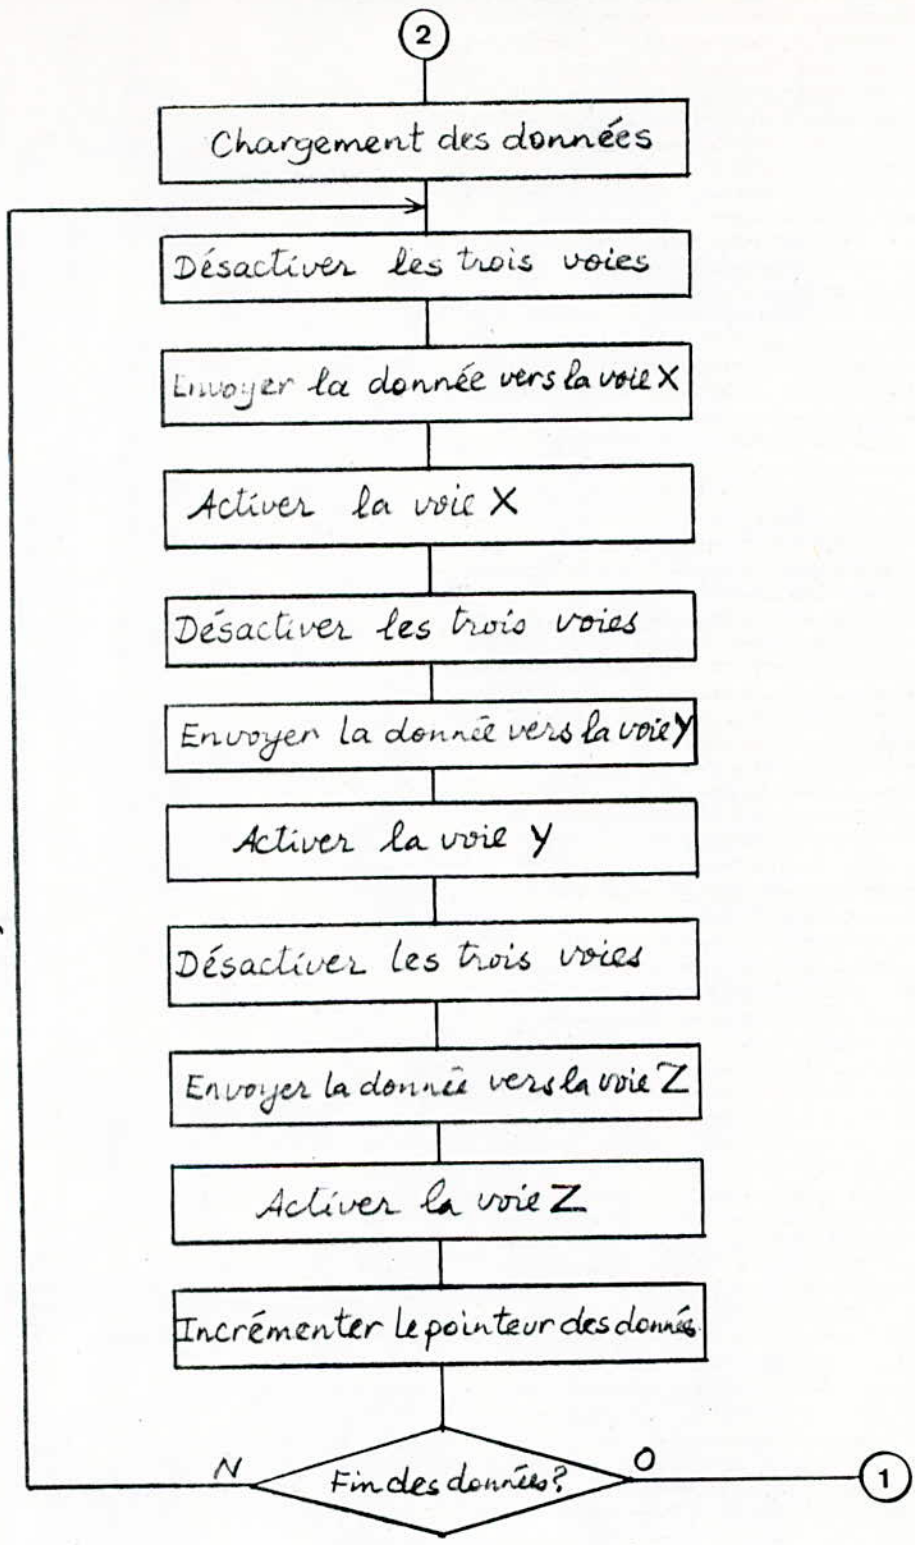 2
Chargement des données
Désactiver les trois voies
Envoyer la donnée vers la voie X
Activer la voie X
Désactiver les trois voies
Envoyer la donnée vers la voie Y
Activer la voie Y
Désactiver les trois voies
Envoyer la donnée vers la voie Z
Activer la voie Z
Incrémenter le pointeur des données
N
Fin des données?
O
1